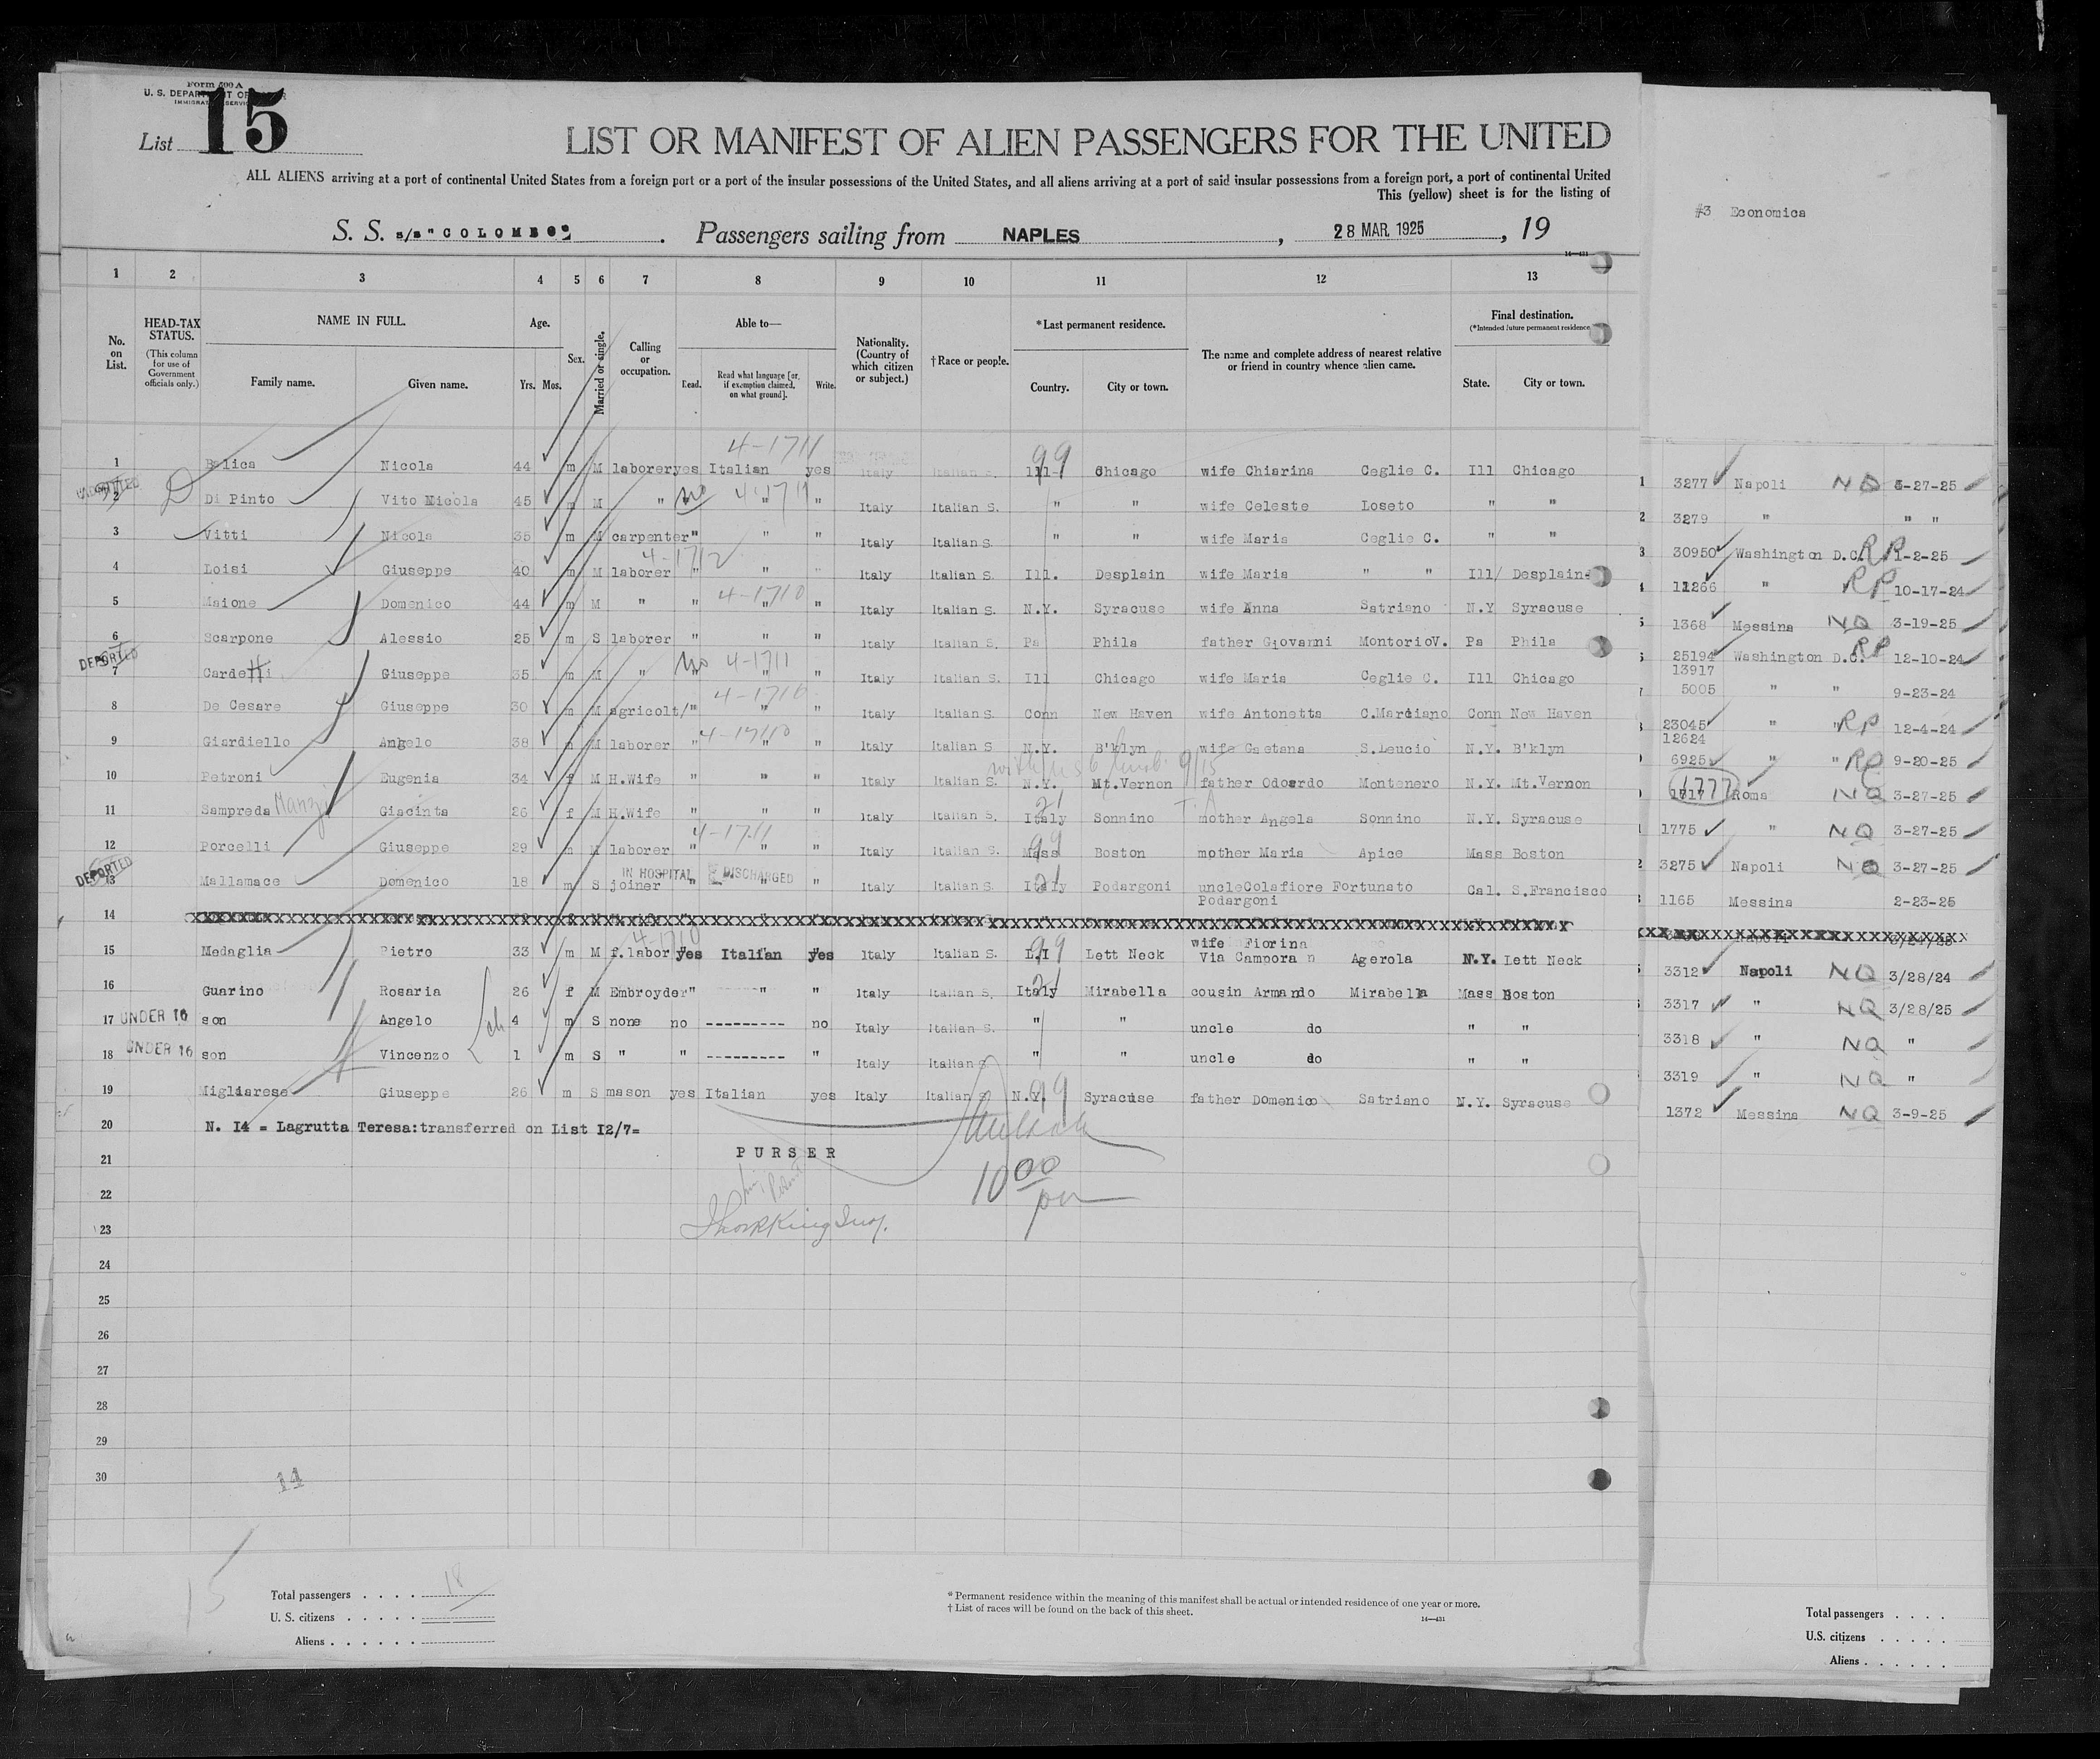 Form 500 A
U. S. DEPARTMENT OF
List 15
LIST OR MANIFEST OF ALIEN PASSENGERS FOR THE UNITED
ALL ALIENS arriving at a port of continental United States from a foreign port or a port of the insular possessions of the United States, and all aliens arriving at a port of said insular possessions from a foreign port, a port of continental United
This (yellow) sheet is for the listing of
#3 Economica
S. S. s/s "COLOMBO" . Passengers sailing from NAPLES , 28 MAR. 1925 , 19
14—431
1 2 3 4 5 6 7 8 9 10 11 12 13
No. on List. HEAD-TAX STATUS. (This column for use of Government officials only.) NAME IN FULL. Family name. Given name. Age. Yrs. Mos. Sex. Married or single. Calling or occupation. Able to— Read. Read what language [or, if exemption claimed, on what ground]. Write. Nationality. (Country of which citizen or subject.) †Race or people. *Last permanent residence. Country. City or town. The name and complete address of nearest relative or friend in country whence alien came. Final destination. (*Intended future permanent residence State. City or town.
4-1711 99
1 Belica Nicola 44 m M laborer yes Italian yes Italy Italian S. Ill Chicago wife Chiarina Ceglie C. Ill Chicago 1 3277 Napoli NQ 3-27-25
2 Di Pinto Vito Nicola 45 m M " no 4-1711 " " Italy Italian S. " " wife Celeste Loseto " " 2 3279 " " "
3 Vitti Nicola 35 m M carpenter " " " Italy Italian S. " " wife Maria Ceglie C. " " 3 30950 Washington D.C. RP 1-2-25
4-1712
4 Loisi Giuseppe 40 m M laborer " " " Italy Italian S. Ill. Desplain wife Maria " " Ill/ Desplaine 11266 " RP 10-17-24
4-1710
5 Maione Domenico 44 m M " " " " Italy Italian S. N.Y. Syracuse wife Anna Satriano N.Y Syracuse 1368 Messina NQ 3-19-25
6 Scarpone Alessio 25 m S laborer " " " Italy Italian S. Pa Phila father Giovanni Montorio V. Pa Phila 25194 Washington D.C. RP 12-10-24
DEPORTED no 4-1711 13917
7 Cardetti Giuseppe 35 m M " " " " Italy Italian S. Ill Chicago wife Maria Ceglie C. Ill Chicago 5005 " " 9-23-24
4-1710
8 De Cesare Giuseppe 30 m M agricolt/ " " " Italy Italian S. Conn New Haven wife Antonetta C.Marciano Conn New Haven 23045 " " RP 12-4-24
4-1710 12624
9 Giardiello Angelo 38 m M laborer " " " Italy Italian S N.Y. B'klyn wife Gaetana S.Leucio N.Y. B'klyn 6925 " " RP 9-20-25
10 Petroni Eugenia 34 f M H.Wife " " " Italy Italian S. N.Y. Mt.Vernon father Odoardo Montenero N.Y. Mt.Vernon 1717 1777 Roma NQ 3-27-25
21
11 Sampreda Manzi Giacinta 26 f M H.Wife " " " Italy Italian S. Italy Sonnino mother Angela Sonnino N.Y. Syracuse 1775 " NQ 3-27-25
4-1711 99
12 Porcelli Giuseppe 29 m M laborer " " " Italy Italian S. Mass Boston mother Maria Apice Mass Boston 3275 Napoli NQ 3-27-25
DEPORTED IN HOSPITAL DISCHARGED 21
13 Mallamace Domenico 18 m S joiner " " " Italy Italian S. Italy Podargoni uncle Colafiore Fortunato Cal. S.Francisco 1165 Messina 2-23-25
Podargoni
14 xxxxxxxxxxxxxxxxxxxxxxxxxxxxxxxxxxxxxxxx
4-1710 99 wife Fiorina
15 Medaglia Pietro 33 m M f.labor yes Italian yes Italy Italian S. L.I Lett Neck Via Campora n Agerola N.Y. Lett Neck 3312 Napoli NQ 3/28/24
21
16 Guarino Rosaria 26 f M Embroyder " " " Italy Italian S. Italy Mirabella cousin Armando Mirabella Mass Boston 3317 " NQ 3/28/25
17 UNDER 16 son Angelo ch 4 m S none no --------- no Italy Italian S. " " uncle do " " 3318 " NQ "
18 UNDER 16 son Vincenzo 1 m S " " --------- " Italy Italian S " " uncle do " " 3319 " NQ "
19 Migliarese Giuseppe 26 m S mason yes Italian yes Italy Italian S N.Y. 99 Syracuse father Domenico Satriano N.Y. Syracuse 1372 Messina NQ 3-9-25
20 N. I4 = Lagrutta Teresa:transferred on List I2/7=
21 PURSER
22 10 00 pm
23
24
25
26
27
28
29
30
14
15
Total passengers . . . . 18
U. S. citizens . . . . .
Aliens . . . . . .
* Permanent residence within the meaning of this manifest shall be actual or intended residence of one year or more.
† List of races will be found on the back of this sheet.
14—431
Total passengers . . . .
U.S. citizens . . . . .
Aliens . . . . . .